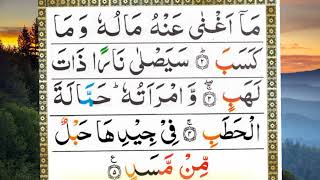 مَاۤ اَغْنٰی عَنْهُ مَالُهٗ وَ مَا
كَسَبَ ۟ؕ۲ سَیَصْلٰی نَارًا ذَاتَ
لَهَبٍ ۟ۚۖ۳ وَّ امْرَاَتُهٗ حَمَّالَةَ
الْحَطَبِ ۟ۚ۴ فِیْ جِیْدِهَا حَبْلٌ
مِّنْ مَّسَدٍ ۟۠۵